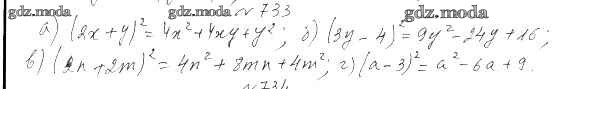 gdz.moda gdz.moda №733 gdz.moda
а) (2x+y)²=4x²+4xy+y²; б) (3y-4)²=9y²-24y+16;
в) (2n+2m)²=4n²+8mn+4m²; г) (a-3)²=a²-6a+9.
№734